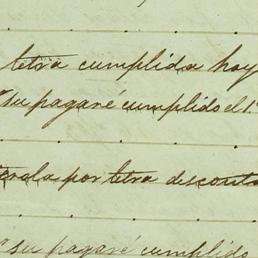 letra cumplida hoy
su pagaré cumplido el 1
por letra descont
su pagaré cumplido